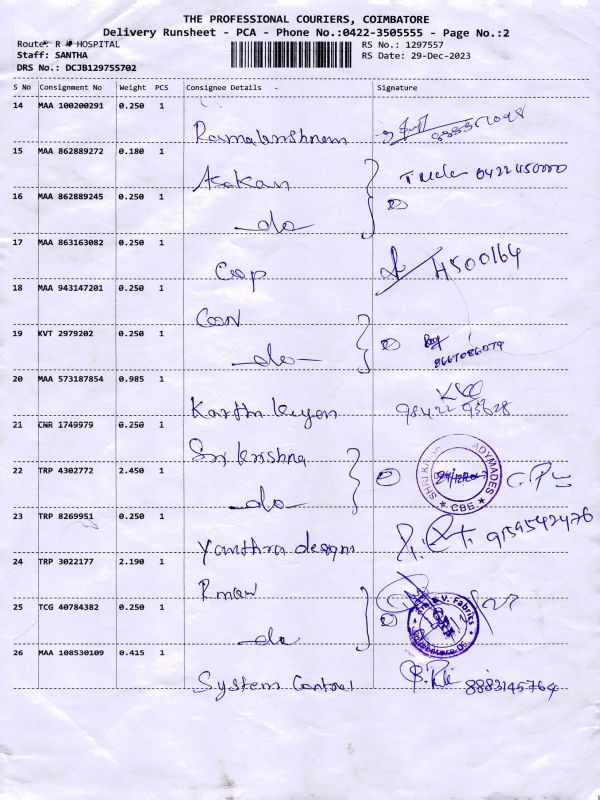 THE PROFESSIONAL COURIERS, COIMBATORE
Delivery Runsheet - PCA - Phone No.:0422-3505555 - Page No.:2
Route: R HOSPITAL
RS No.: 1297557
Staff: SANTHA
RS Date: 29-Dec-2023
DRS No.: DCJB129755702
S No Consignment No Weight Pcs Consignee Details - Signature
14 MAA 100200291 0.250 1
Ramakrishnan
15 MAA 862889272 0.180 1
Asokan 0422 450000
16 MAA 862889245 0.250 1
do
17 MAA 863163082 0.250 1
Cap 4500164
18 MAA 943147201 0.250 1
19 KVT 2979202 0.250 1
do 8667086079
20 MAA 573187854 0.985 1
98422 95628
21 CNR 1749979 0.250 1
Sri Krishna
22 TRP 4302772 2.450 1
SHRI ADYMADES
CBE
do
23 TRP 8269951 0.250 1
Yanthra design 9159542476
24 TRP 3022177 2.190 1
25 TCG 40784382 0.250 1
V. Fabrics
do
26 MAA 108530109 0.415 1
System Control 8883145764